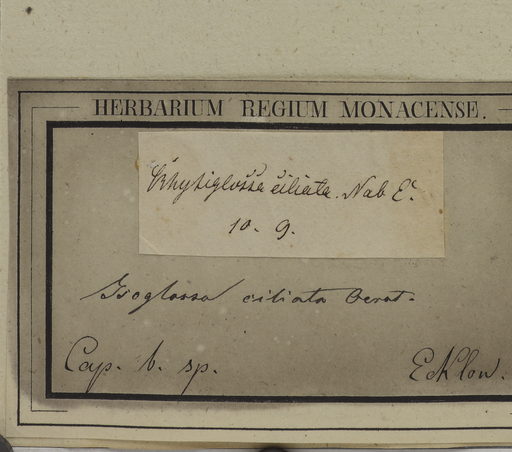 HERBARIUM REGIUM MONACENSE.
Rhytiglossa ciliata. Nab E.
10. 9.
Isoglossa ciliata
Cap. b. sp.
Ecklon.